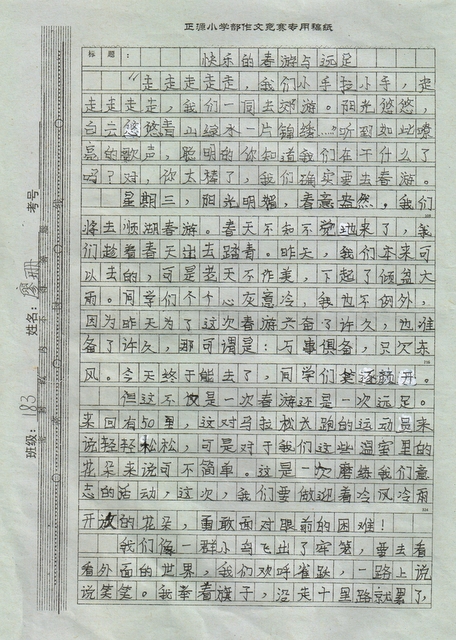 正源小学部作文竞赛专用稿纸
标题：
快乐的春游与远足
“走走走走走，我们小手拉小手，走
走走走走，我们一同去郊游。阳光悠悠，
白云悠悠青山绿水一片锦绣……”听到如此嘹
亮的歌声，聪明的你知道我们在干什么了
吗？对，你太棒了，我们确实要去春游。
星期三，阳光明媚，春意盎然。我们
将去顺湖春游。春天不知不觉地来了，我
们趁着春天出去踏青。昨天，我们本来可
以去的，可是老天不作美，下起了倾盆大
雨。同学们个个心灰意冷，我也不例外，
因为昨天为了这次春游兴奋了许久，也准
备了许久，那可谓是：万事俱备，只欠东
风。今天终于能去了，同学们笑逐颜开。
但这不仅是一次春游还是一次远足。
来回有50里，这对马拉松长跑的运动员来
说轻轻松松，可是对于我们这些温室里的
花朵来说可不简单。这是一次磨练我们意
志的活动，这次，我们要做迎着冷风冷雨
开放的花朵，勇敢面对眼前的困难！
我们像一群小鸟飞出了牢笼，要去看
看外面的世界，我们欢呼雀跃，一路上说
说笑笑。我举着旗子，没走十里路就累了，
考号
姓名：廖珊
班级：183